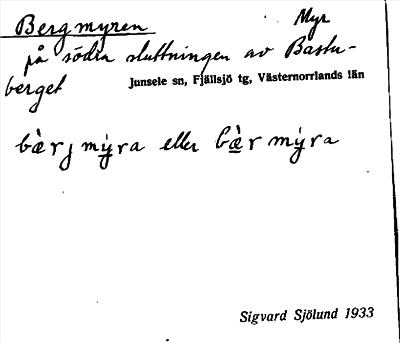 Bergmyren Myr
på södra sluttningen av Bastu-
berget
Junsele sn, Fjällsjö tg, Västernorrlands län
bæ̀rj mẏ́ra eller bæ̀r mẏ́ra
Sigvard Sjölund 1933